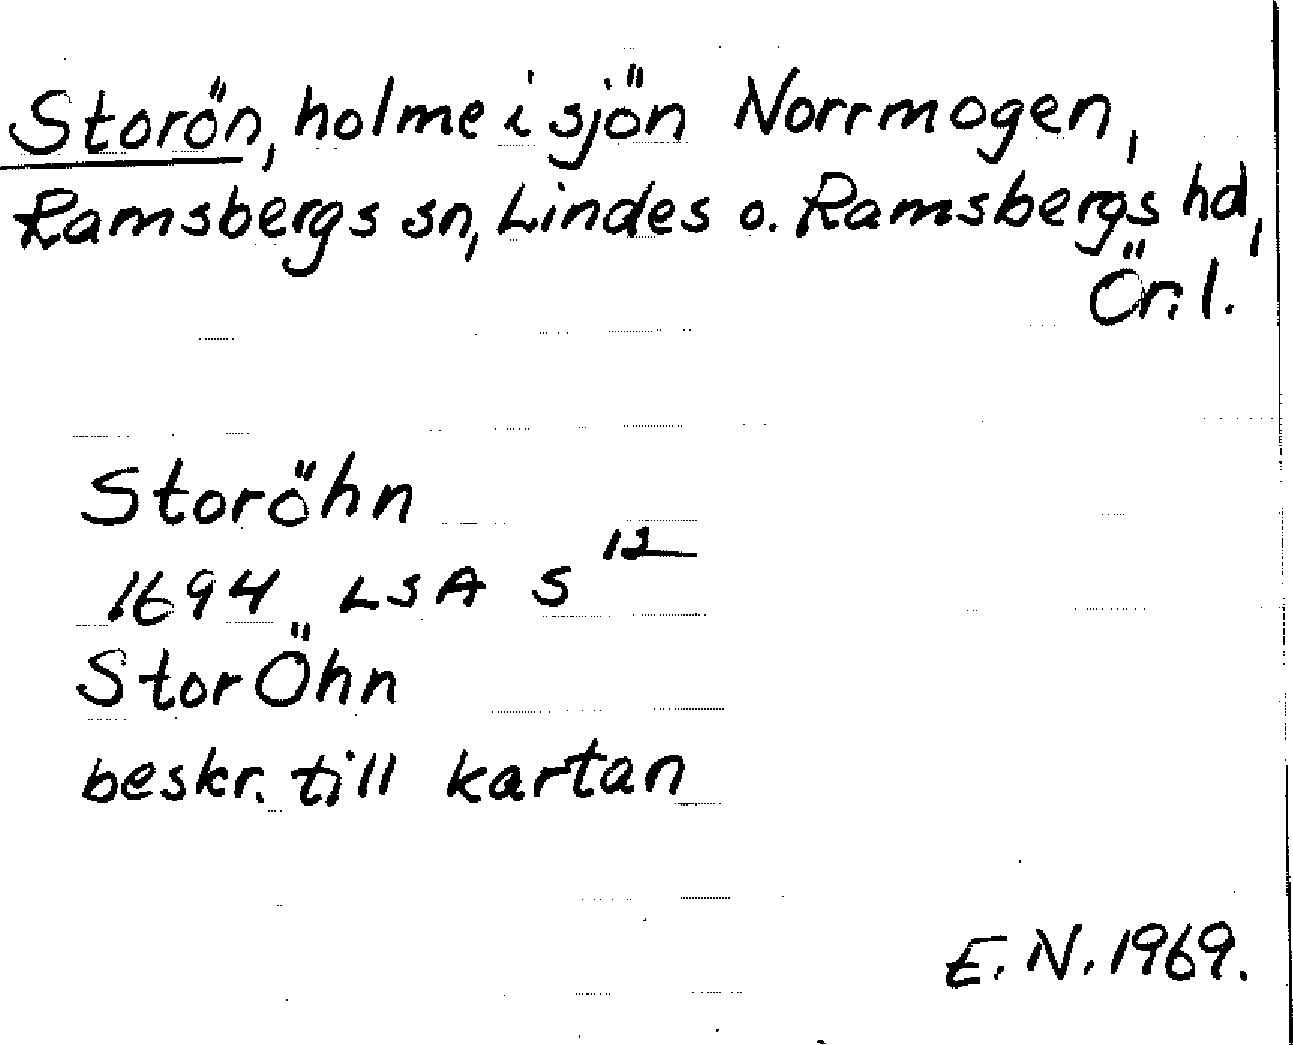 Storön, holme i sjön Norrmogen,
Ramsbergs sn, Lindes o. Ramsbergs hd,
Ör. l.
Storöhn
1694 LSA S 12
Stor Öhn
beskr. till kartan
E. N. 1969.